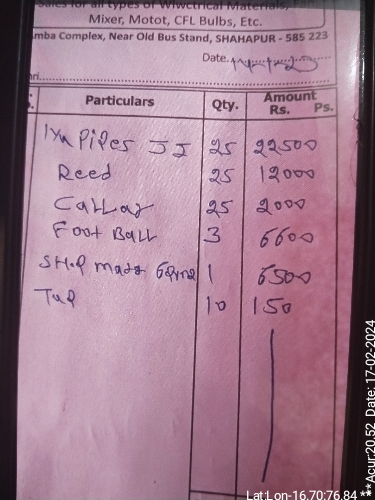 Sales for all types of Wlwctrical Materials,
Mixer, Motot, CFL Bulbs, Etc.
amba Complex, Near Old Bus Stand, SHAHAPUR - 585 223
Date.
Particulars Qty. Amount
Rs. Ps.
Pipes JJ 25 22500
Reed 25 12000
Collar 25 2000
Foot Ball 3 6600
1 6500
Tap 10 150
Lat:Lon-16.70:76.84 ***Acur:20.52 Date: 17-02-2024